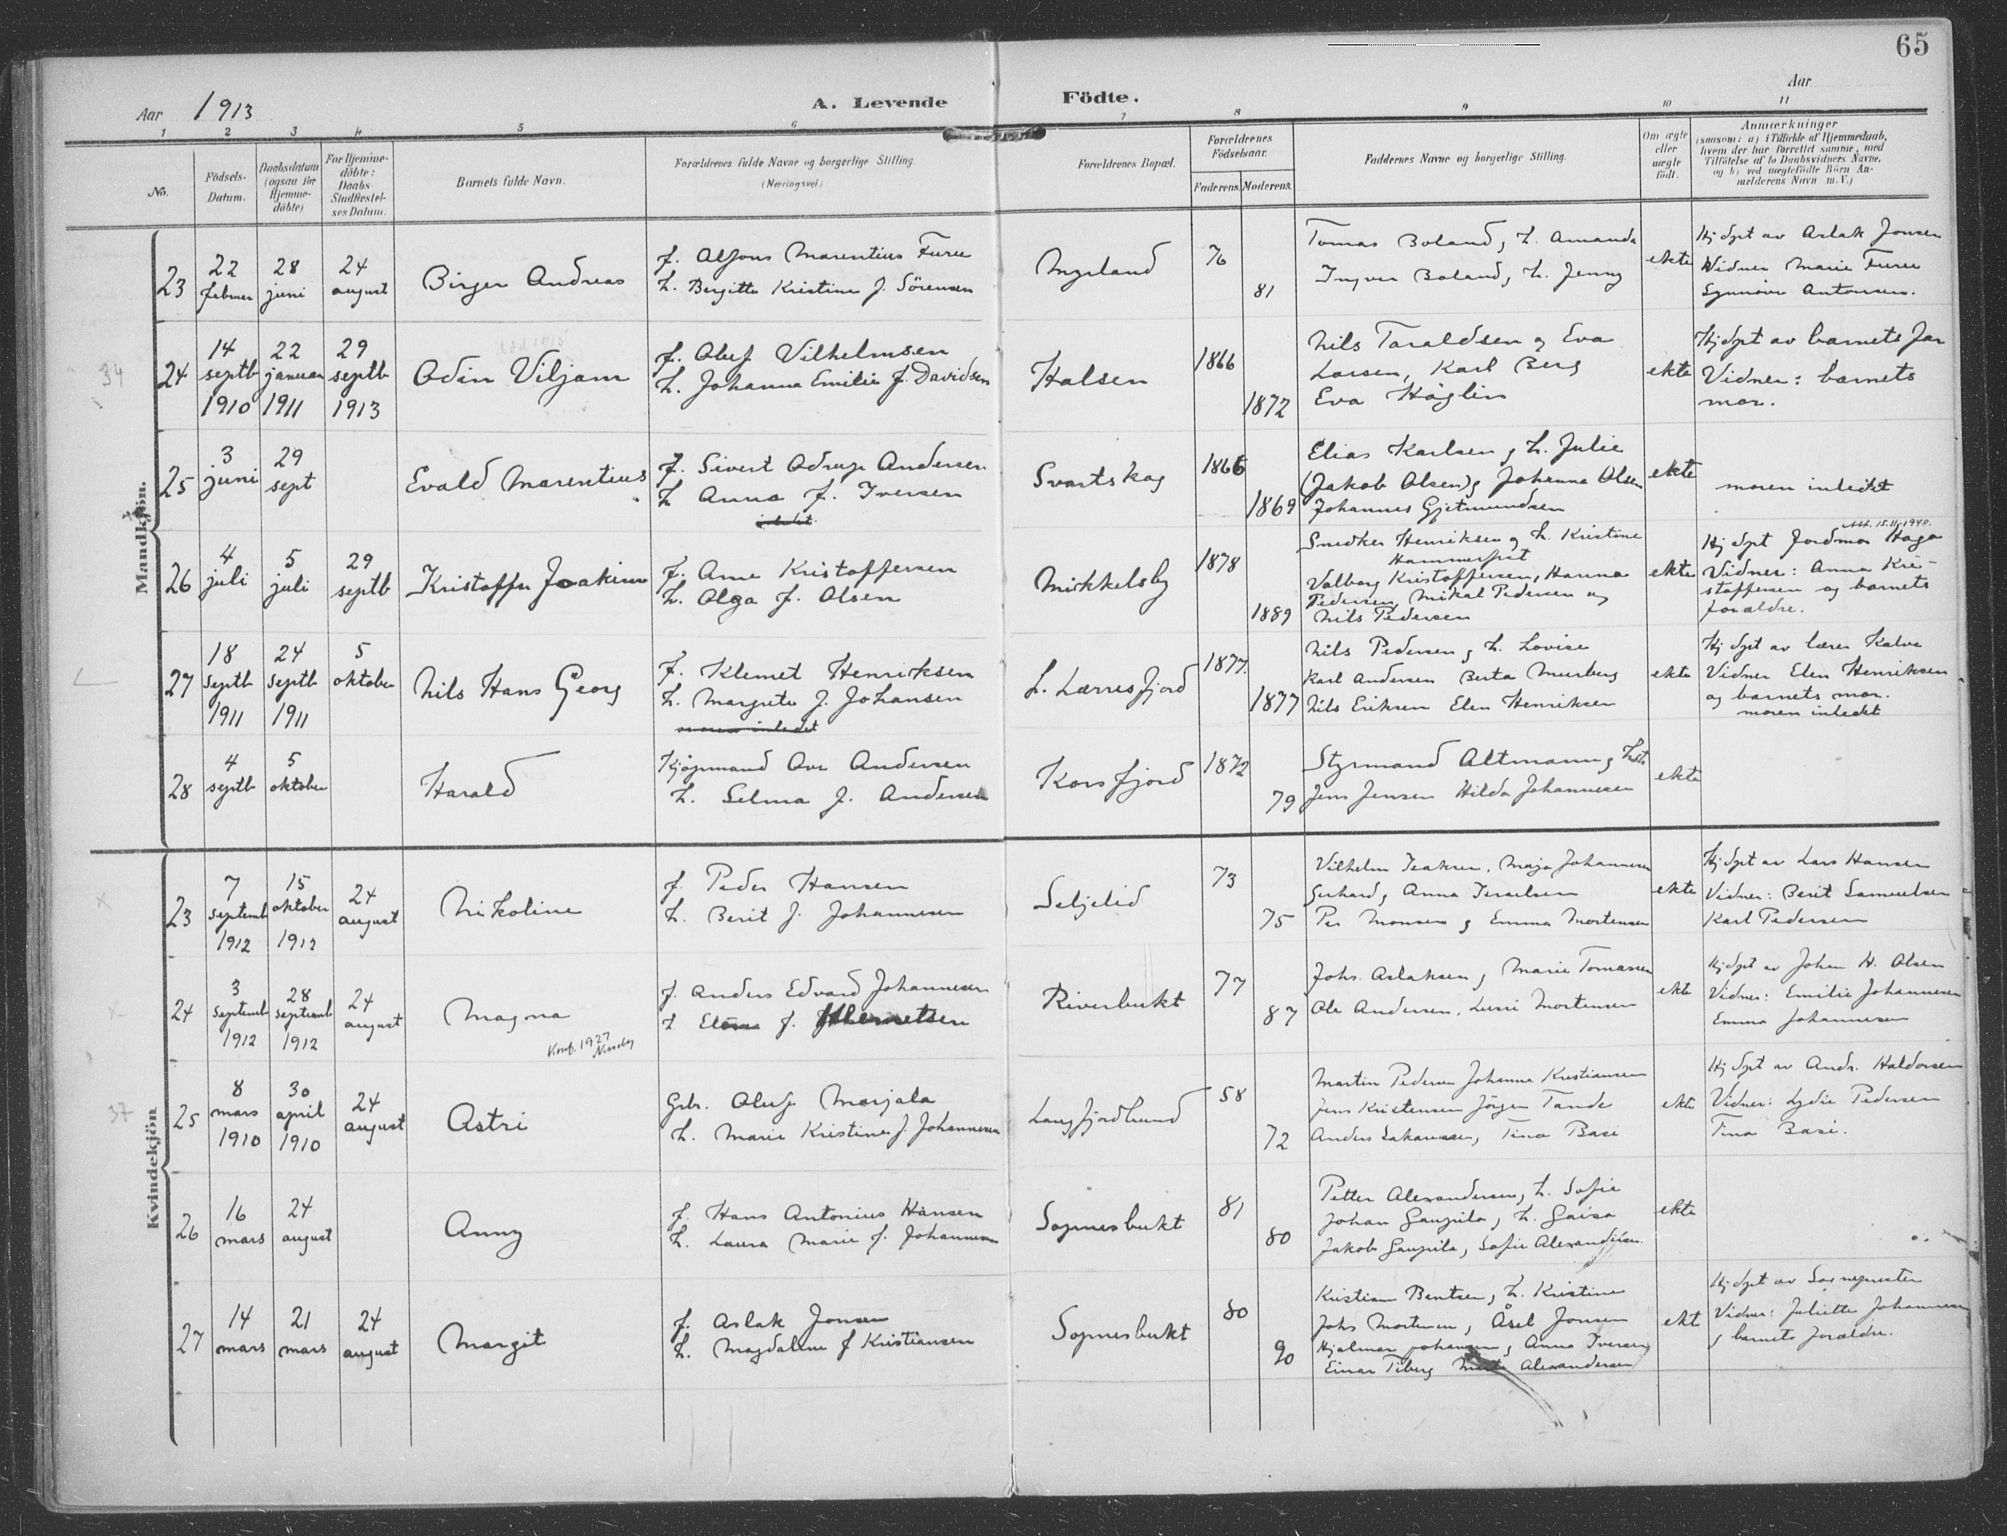 65
Aar 1913
A. Levende Födte.
Aar
1 2 3 4 5 6 7 8 9 10 11
No.
Födsels-
Datum.
Daabsdatum
(ogsaa for
Hjemme-
döbte)
For Hjemme-
döbte:
Daabs-
Stadfæstel-
ses Datum.
Barnets fulde Navn.
Forældrenes fulde Navne og borgerlige Stilling.
(Næringsvei)
Forældrenes Bopæl.
Forældrenes
Födselsaar.
Faderens. Moderens.
Faddernes Navne og borgerlige Stilling.
Om ægte
eller
uægte
födt.
Anmærkninger
(saasom: a) i Tilfælde af Hjemmedaab,
hvem der har forrettet samme, med
Tilföielse af to Daabsvidners Navne,
og b) ved uægtefödte Börn An-
melderens Navn m. V.)
Mandkjön.
23
22
februar
28
juni
24
august
Birger Andreas
f. Alfons Marentius Furu
h. Bergitte Kristine f. Sörensen
Myrland
76
81
Tomas Boland, h. Amanda
Ingver Boland, h. Jenny
ekte
Hj döpt av Aslak Jonsen
Vidner Marie Furu
Synnöve Antonsen.
34
24
14
septb
1910
22
januar
1911
29
septb
1913
död 1913
Odin Viljam
f. Oluf Vilhelmsen
h. Johanna Emilie f. Davidsen
Halsen
1866
1872
Nils Taraldsen og Eva
Larsen, Karl Berg
Eva Höglin
ekte
Hj döpt av barnets far
Vidner: barnets
mor.
25
3
juni
29
sept
Evald Marentius
f. Sivert Odrup Andersen
h. Anna f. Iversen
Svartskog
1866
1869
Elias Karlsen g h. Julie
(Jakob Olsen) g Johanna Olsen
Johannes Gjetmundsen
ekte
moren inledet
26
4
juli
5
juli
29
septb
Kristoffer Joakim
f. Arne Kristoffersen
h. Olga f. Olsen
Mikkelsby
1878
1889
Snedker Henriksen og h. Kristine
Hammerfest
Valborg Kristoffersen, Hanna
Pedersen, Mikal Pedersen og
Nils Pedersen
ekte
Att. 15.11.1948.
Hj döpt Jordmor Haga
Vidner: Anna Kri-
stoffersen og barnets
forældre.
27
18
septb
1911
24
septb
1911
5
oktober
Nils Hans Georg
f. Klemet Henriksen
h. Margrete f. Johansen
moren inledet
L. Lærresfjord
1877.
1877
Nils Pedersen g h. Lovise
Karl Andersen Berta Murberg
Nils Eriksen Elen Henriksen
ekte
Hj döpt av lærer Kalve
Vidner Elen Henriksen
og barnets mor.
moren inledet
28
4
septb
5
oktober
Harald
Kjöpmand Ove Andersen
h. Selma f. Andersen
Korsfjord
1872
79
Styrmand Altmann g
Jens Jensen Hilda Johannesen
ekte
Kvindekjön
23
7
septemb
1912
15
oktober
1912
24
august
Nikoline
f. Peder Hansen
h. Berit f. Johannesen
Seljelid
73
75
Vilhelm Isaksen, Maja Johannesen
Gerhard g Anna Israelsen
Per Monsen g Emma Mortensen
ekte
Hj döpt av Lars Hansen
Vidner: Berit Samuelsen
Karl Pedersen
24
3
septemb
1912
28
septemb
1912
24
august
Magna
Konf. 1927
f. Anders Edvard Johannesen
Riverbukt
77
87
Johs. Aslaksen, Marie Tomassen
Ole Andersen, Lussi Mortensen
ekte
Hj döpt av Johan H. Olsen
Vidner: Emilie Johannesen
Emma Johannesen
37
25
8
mars
1910
30
april
1910
24
august
Astri
Grbr. Oluf Marjala
h. Marie Kristine f. Johannesen
Langfjordbund
58
72
Martin Pedersen Johanna Kristiansen
Jens Kristensen Jörgen Tande
Anders Sakariassen, Tina Basi
ekte
Hj döpt av Andr. Haldorsen
Vidner: Lydie Pedersen
Tina Basi.
26
16
mars
24
august
Anny
f. Hans Antonius Hansen
h. Laura Marie f. Johannesen
Sopnesbukt
81
80
Petter Alexandersen, h. Sofie
Johan Gaupila, h. Gaisa
Jakob Gaupila, Sofie Alexandersen
ekte
27
14
mars
21
mars
24
august
Margit
f. Aslak Jonsen
h. Magdalene f Kristiansen
Sopnesbukt
80
90
Kristian Bentsen, h. Kristine
Johs Mortensen, Åsel Jonsen
Hjalmar Johansen, Anna Iversen
Einar Tiberg Alexandersen
ekt
Hj döpt av Sognepresten
Vidner: Juliette Johannesen
g barnets forældre.